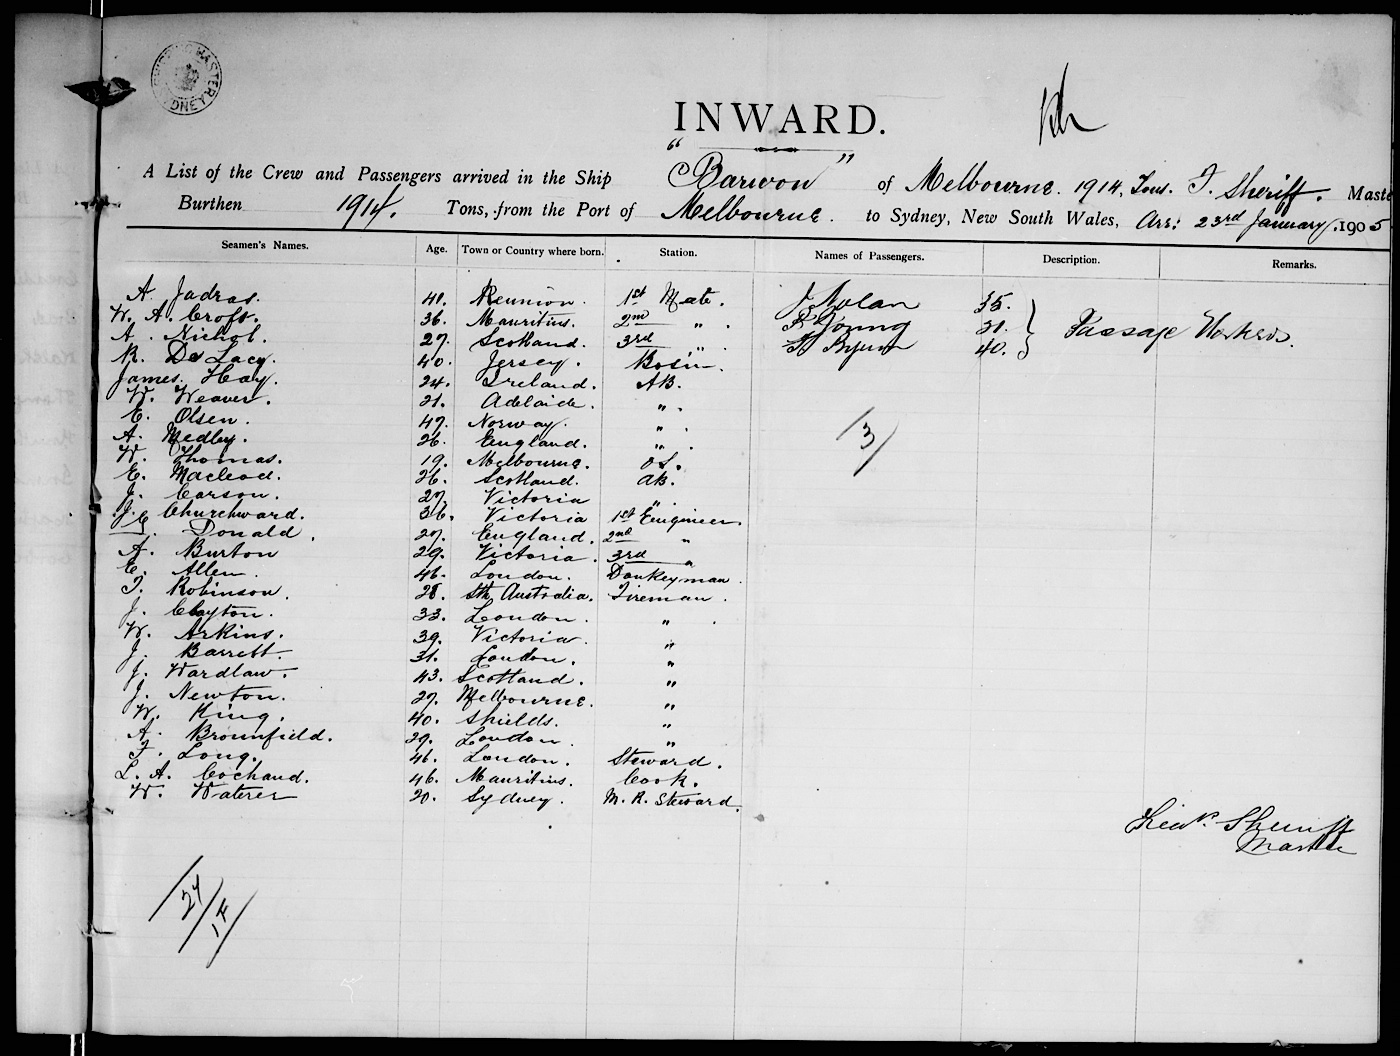 SHIPPING MASTER SYDNEY
INWARD.
A List of the Crew and Passengers arrived in the Ship "Barwon" of Melbourne. 1914, Tons. F. Sheriff. Maste
Burthen 1914. Tons, from the Port of Melbourne. to Sydney, New South Wales, Arr: 23rd January, 1905
Seamen's Names. Age. Town or Country where born. Station. Names of Passengers. Description. Remarks.
A. Jadras. 40. Reunion. 1st Mate. J Nolan 35.
W. A. Croft. 36. Mauritius. 2nd " . F Young 31. Passage Workers.
A. Nichol. 27. Scotland. 3rd " . Byrne 40.
R. De Lacy. 40. Jersey. Bosin.
James Hay. 24. Ireland. AB.
W. Weaver. 21. Adelaide. " .
E. Olsen. 47. Norway. " .
A. Medley. 26. England. " .
W. Thomas. 19. Melbourne. OS.
E. Macleod. 26. Scotland. AB.
J. Carson. 27. Victoria " .
J. Churchward. 36. Victoria 1st Engineer
Donald. 27. England. 2nd "
A. Burton 29. Victoria. 3rd "
E. Allen. 46. London. Donkeyman.
T. Robinson. 28. Sth Australia. Fireman.
J. Clayton. 33. London. " .
W. Arkins. 39. Victoria. "
J. Barrett. 31. London. "
J. Wardlaw. 43. Scotland. "
J. Newton. 27. Melbourne. "
W. King. 40. Shields. "
A. Brounfield. 29. London. "
F. Long. 46. London. Steward.
L. A. Cochaud. 46. Mauritius. Cook.
W. Waterer 20. Sydney. M. R. Steward.
3
Sheriff
Master
24
1F